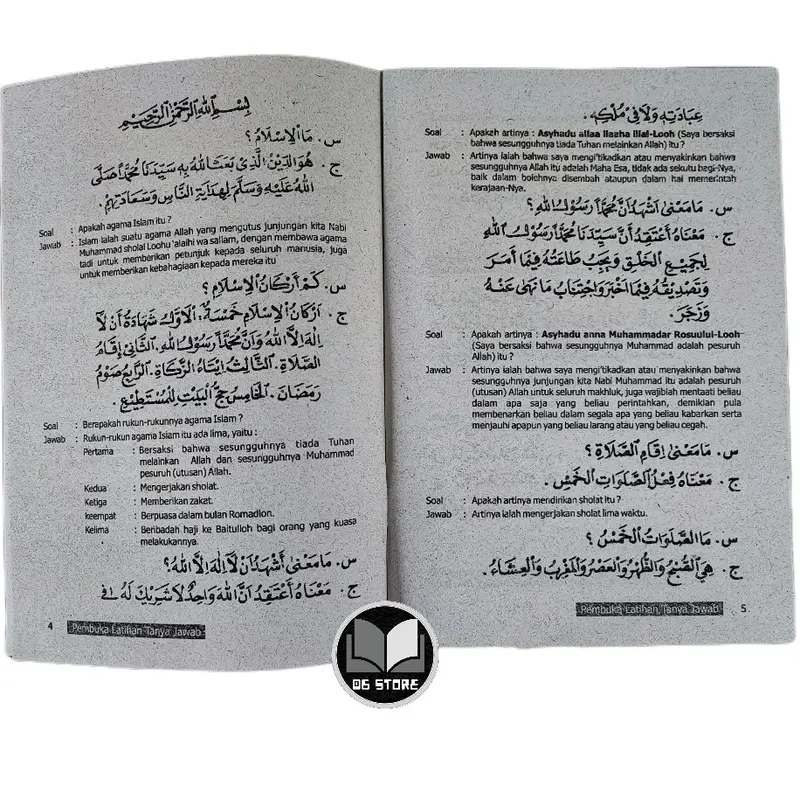 بِسْمِ اللهِ الرَّحْمٰنِ الرَّحِيْمِ
س. مَا الْاِسْلَامُ ؟
ج. هُوَ الدِّيْنُ الَّذِيْ بَعَثَ اللهُ بِهِ سَيِّدَنَا مُحَمَّدًا صَلَّى
اللهُ عَلَيْهِ وَسَلَّمَ لِهِدَايَةِ النَّاسِ وَسَعَادَتِهِمْ.
Soal : Apakah agama Islam itu ?
Jawab : Islam ialah suatu agama Allah yang mengutus junjungan kita Nabi
Muhammad sholal Loohu 'alaihi wa sallam, dengan membawa agama
tadi untuk memberikan petunjuk kepada seluruh manusia, juga
untuk memberikan kebahagiaan kepada mereka itu
س. كَمْ اَرْكَانُ الْاِسْلَامِ ؟
ج. اَرْكَانُ الْاِسْلَامِ خَمْسَةٌ: اَلْاَوَّلُ شَهَادَةُ اَنْ لَّا
اِلٰهَ اِلَّا اللهُ وَاَنَّ مُحَمَّدًا رَسُوْلُ اللهِ. اَلثَّانِيْ اِقَامُ
الصَّلَاةِ. اَلثَّالِثُ اِيْتَاءُ الزَّكَاةِ. اَلرَّابِعُ صَوْمُ
رَمَضَانَ. اَلْخَامِسُ حَجُّ الْبَيْتِ لِلْمُسْتَطِيْعِ.
Soal : Berapakah rukun-rukunnya agama Islam ?
Jawab : Rukun-rukun agama Islam itu ada lima, yaitu :
Pertama : Bersaksi bahwa sesungguhnya tiada Tuhan
melainkan Allah dan sesungguhnya Muhammad
pesuruh (utusan) Allah.
Kedua : Mengerjakan sholat.
Ketiga : Memberikan zakat.
keempat : Berpuasa dalam bulan Romadlon.
Kelima : Beribadah haji ke Baitulloh bagi orang yang kuasa
melakukannya.
س. مَا مَعْنَى اَشْهَدُ اَنْ لَّا اِلٰهَ اِلَّا اللهُ؟
ج. مَعْنَاهُ اَعْتَقِدُ اَنَّ اللهَ وَاحِدٌ لَا شَرِيْكَ لَهُ فِي
4 Pembuka Latihan Tanya Jawab
عِبَادَتِهِ وَلَا فِيْ مُلْكِهِ.
Soal : Apakah artinya : Asyhadu allaa Ilaaha Illal-Looh (Saya bersaksi
bahwa sesungguhnya tiada Tuhan melainkan Allah) itu ?
Jawab : Artinya ialah bahwa saya mengi'tikadkan atau menyakinkan bahwa
sesungguhnya Allah itu adalah Maha Esa, tidak ada sekutu bagi-Nya,
baik dalam bolehnya disembah ataupun dalam hal memerintah
kerajaan-Nya.
س. مَا مَعْنَى اَشْهَدُ اَنَّ مُحَمَّدًا رَسُوْلُ اللهِ؟
ج. مَعْنَاهُ اَعْتَقِدُ اَنَّ سَيِّدَنَا مُحَمَّدًا رَسُوْلُ اللهِ
لِجَمِيْعِ الْخَلْقِ وَيَجِبُ طَاعَتُهُ فِيْمَا اَمَرَ
وَتَصْدِيْقُهُ فِيْمَا اَخْبَرَ وَاجْتِنَابُ مَا نَهَى عَنْهُ
وَزَجَرَ.
Soal : Apakah artinya : Asyhadu anna Muhammadar Rosuulul-Looh
(Saya bersaksi bahwa sesungguhnya Muhammad adalah pesuruh
Allah) itu ?
Jawab : Artinya ialah bahwa saya mengi'tikadkan atau menyakinkan bahwa
sesungguhnya junjungan kita Nabi Muhammad itu adalah pesuruh
(utusan) Allah untuk seluruh makhluk, juga wajiblah mentaati beliau
dalam apa saja yang beliau perintahkan, demikian pula
membenarkan beliau dalam segala apa yang beliau kabarkan serta
menjauhi apapun yang beliau larang atau yang beliau cegah.
س. مَا مَعْنَى اِقَامِ الصَّلَاةِ ؟
ج. مَعْنَاهُ فِعْلُ الصَّلَوَاتِ الْخَمْسِ.
Soal : Apakah artinya mendirikan sholat itu ?
Jawab : Artinya ialah mengerjakan sholat lima waktu.
س. مَا الصَّلَوَاتُ الْخَمْسُ ؟
ج. هِيَ الصُّبْحُ وَالظُّهْرُ وَالْعَصْرُ وَالْمَغْرِبُ وَالْعِشَاءُ.
Pembuka Latihan Tanya Jawab 5
DG STORE